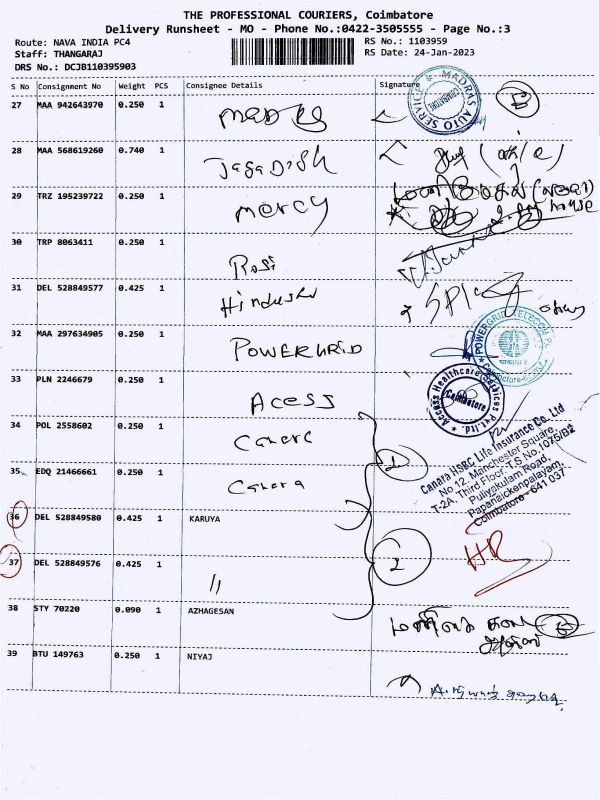 THE PROFESSIONAL COURIERS, Coimbatore
Delivery Runsheet - MO - Phone No.:0422-3505555 - Page No.:3
Route: NAVA INDIA PC4
RS No.: 1103959
Staff: THANGARAJ
RS Date: 24-Jan-2023
DRS No.: DCJB110395903
S No Consignment No Weight PCS Consignee Details Signature
27 MAA 942643970 0.250 1
MADRAS AUTO SERVICE
COIMBATORE
28 MAA 568619260 0.740 1 Jagadish
29 TRZ 195239722 0.250 1 mercy
house
30 TRP 8063411 0.250 1 Rosi
31 DEL 528849577 0.425 1
32 MAA 297634905 0.250 1 POWERGRID
POWERGRID TELECOM
33 PLN 2246679 0.250 1 Acess
Access Healthcare Services Pvt.Ltd.
Coimbatore
34 POL 2558602 0.250 1 Canera
1
Canara HSBC Life Insurance Co. Ltd
No 12, Manchester Square,
T-2A, Third Floor, T.S.No.1075/B2
Puliyakulam Road,
Papanaickenpalayam,
Coimbatore - 641 037
35 EDQ 21466661 0.250 1 Canera
36 DEL 528849580 0.425 1 KARUYA
37 DEL 528849576 0.425 1 "
2
38 STY 70220 0.090 1 AZHAGESAN
39 BTU 149763 0.250 1 NIYAJ